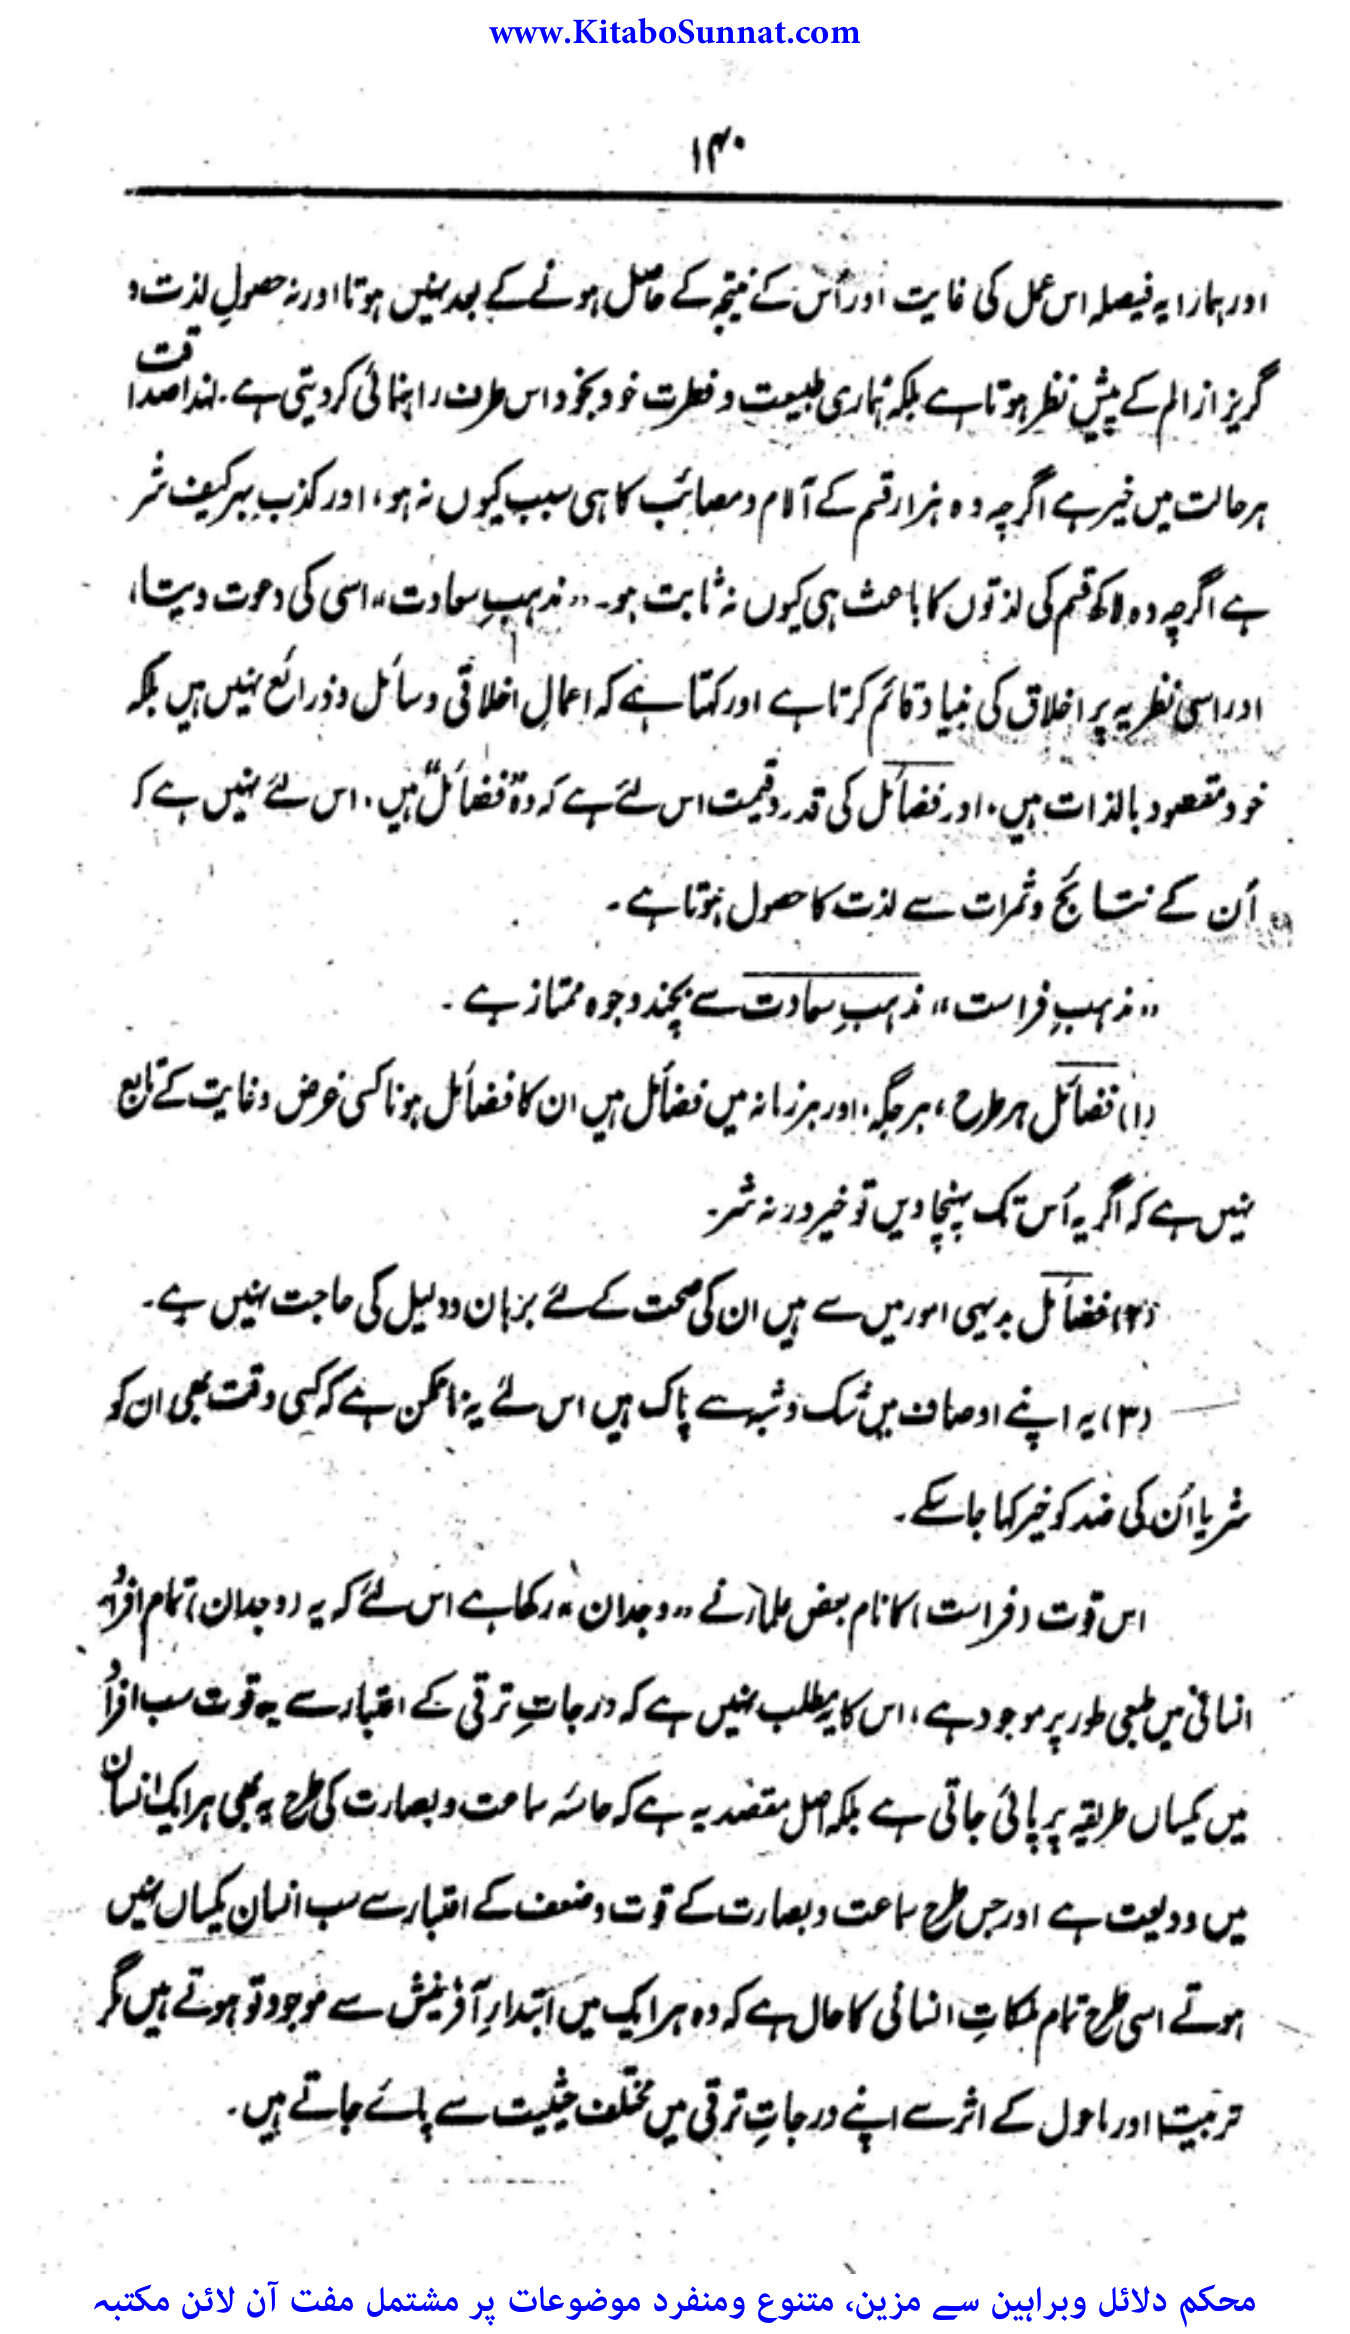 www.KitaboSunnat.com
۱۴۰
اور ہمارا یہ فیصلہ اس عمل کی غایت اور اُس کے نتیجہ کے حاصل ہونے کے بعد نہیں ہوتا اور نہ حصولِ لذت و
گریز از الم کے پیشِ نظر ہوتا ہے بلکہ ہماری طبیعت و فطرت خود بخود اس طرف راہنمائی کردیتی ہے۔ لہذا صداقت
ہر حالت میں خیر ہے اگرچہ وہ ہزار قسم کے آلام و مصائب کا ہی سبب کیوں نہ ہو، اور کذب بہر کیف شر
ہے اگرچہ وہ لاکھ قسم کی لذتوں کا باعث ہی کیوں نہ ثابت ہو۔ "مذہبِ سعادت" اسی کی دعوت دیتا،
اور اسی نظریہ پر اخلاق کی بنیاد قائم کرتا ہے اور کہتا ہے کہ اعمالِ اخلاقی وسائل و ذرائع نہیں ہیں بلکہ
خود مقصود بالذات ہیں، اور فضائل کی قدر و قیمت اس لئے ہے کہ وہ "فضائل" ہیں، اس لئے نہیں ہے کہ
اُن کے نتائج و ثمرات سے لذت کا حصول ہوتا ہے۔
"مذہبِ فراست" مذہبِ سعادت سے بچند وجوہ ممتاز ہے۔
(۱) فضائل ہر طرح، ہر جگہ، اور ہر زمانہ میں فضائل ہیں ان کا فضائل ہونا کسی غرض و غایت کے تابع
نہیں ہے کہ اگر یہ اُس تک پہنچا دیں تو خیر ورنہ شر۔
(۲) فضائل بدیہی امور میں سے ہیں ان کی صحت کے لئے برہان و دلیل کی حاجت نہیں ہے۔
(۳) یہ اپنے اوصاف میں شک و شبہ سے پاک ہیں اس لئے یہ ناممکن ہے کہ کسی وقت بھی ان کو
شر یا اُن کی ضد کو خیر کہا جاسکے۔
اس قوت (فراست) کا نام بعض علماء نے "وجدان" رکھا ہے اس لئے کہ یہ (وجدان) تمام افرادِ
انسانی میں طبعی طور پر موجود ہے، اس کا یہ مطلب نہیں ہے کہ درجاتِ ترقی کے اعتبار سے یہ قوت سب افراد
میں یکساں طریقہ پر پائی جاتی ہے بلکہ اصل مقصد یہ ہے کہ حاسۂ سماعت و بصارت کی طرح یہ بھی ہر ایک انسان
میں ودیعت ہے اور جس طرح سماعت و بصارت کے قوت و ضعف کے اعتبار سے سب انسان یکساں نہیں
ہوتے اسی طرح تمام ملکاتِ انسانی کا حال ہے کہ وہ ہر ایک میں ابتداءِ آفرینش سے موجود تو ہوتے ہیں مگر
تربیت اور ماحول کے اثر سے اپنے درجاتِ ترقی میں مختلف حیثیت سے پائے جاتے ہیں۔
محکم دلائل وبراہین سے مزین، متنوع ومنفرد موضوعات پر مشتمل مفت آن لائن مکتبہ